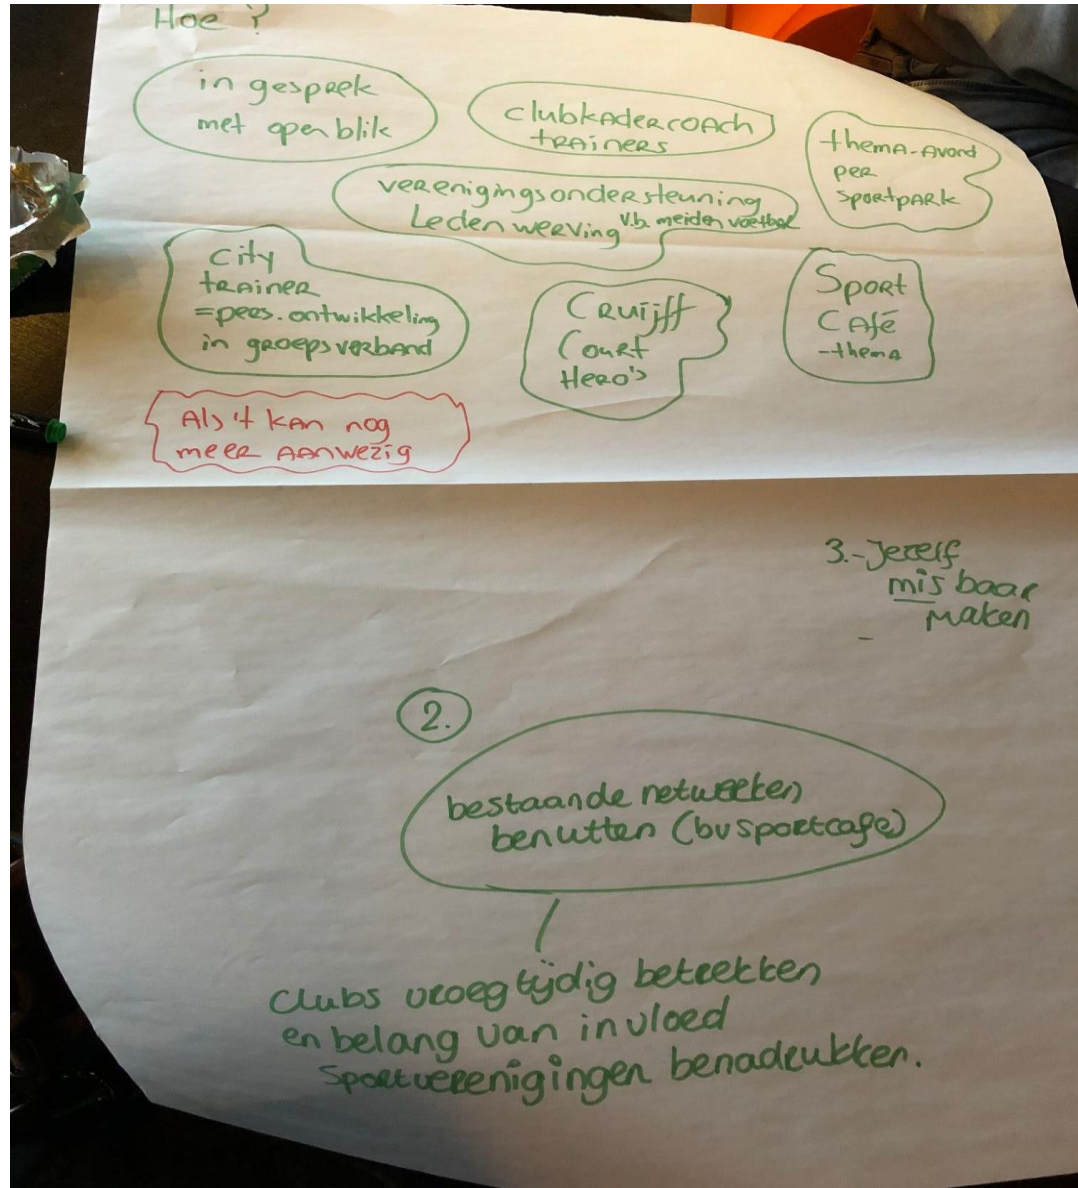 Hoe ?
in gesprek
met open blik
clubkadercoach
trainers
thema-avond
per
sportpark
verenigingsondersteuning
Ledenwerving v.b. meiden voetbal
city
trainer
=pers. ontwikkeling
in groepsverband
Cruijff
Court
Hero's
Sport
Café
-thema
Als 't kan nog
meer aanwezig
3.-Jezelf
misbaar
maken
-
2.
bestaande netwerken
benutten (bv sportcafe)
Clubs vroegtijdig betrekken
en belang van invloed
Sportverenigingen benadrukken.